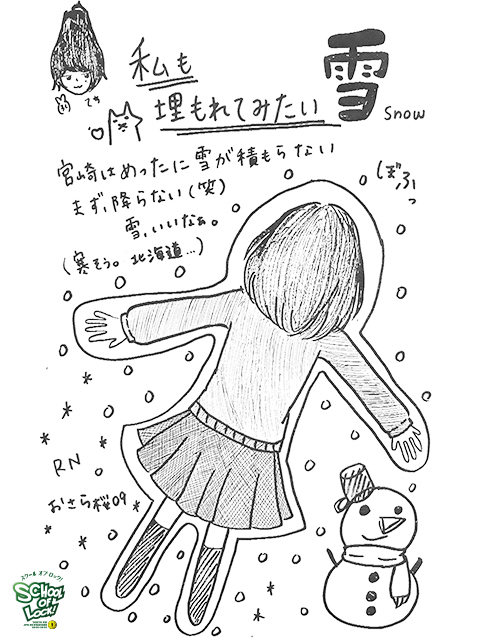 私も
埋もれてみたい
雪
snow
宮崎はめったに雪が積もらない
まず、降らない(笑)
雪、いいなぁ。
(寒そう。北海道...)
ぼふっ
RN
おさら桜09
スクール オブ ロック!
SCHOOL
OF
LOCK!